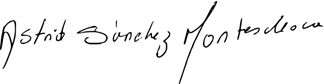 Astrid Sánchez Montesdeoca